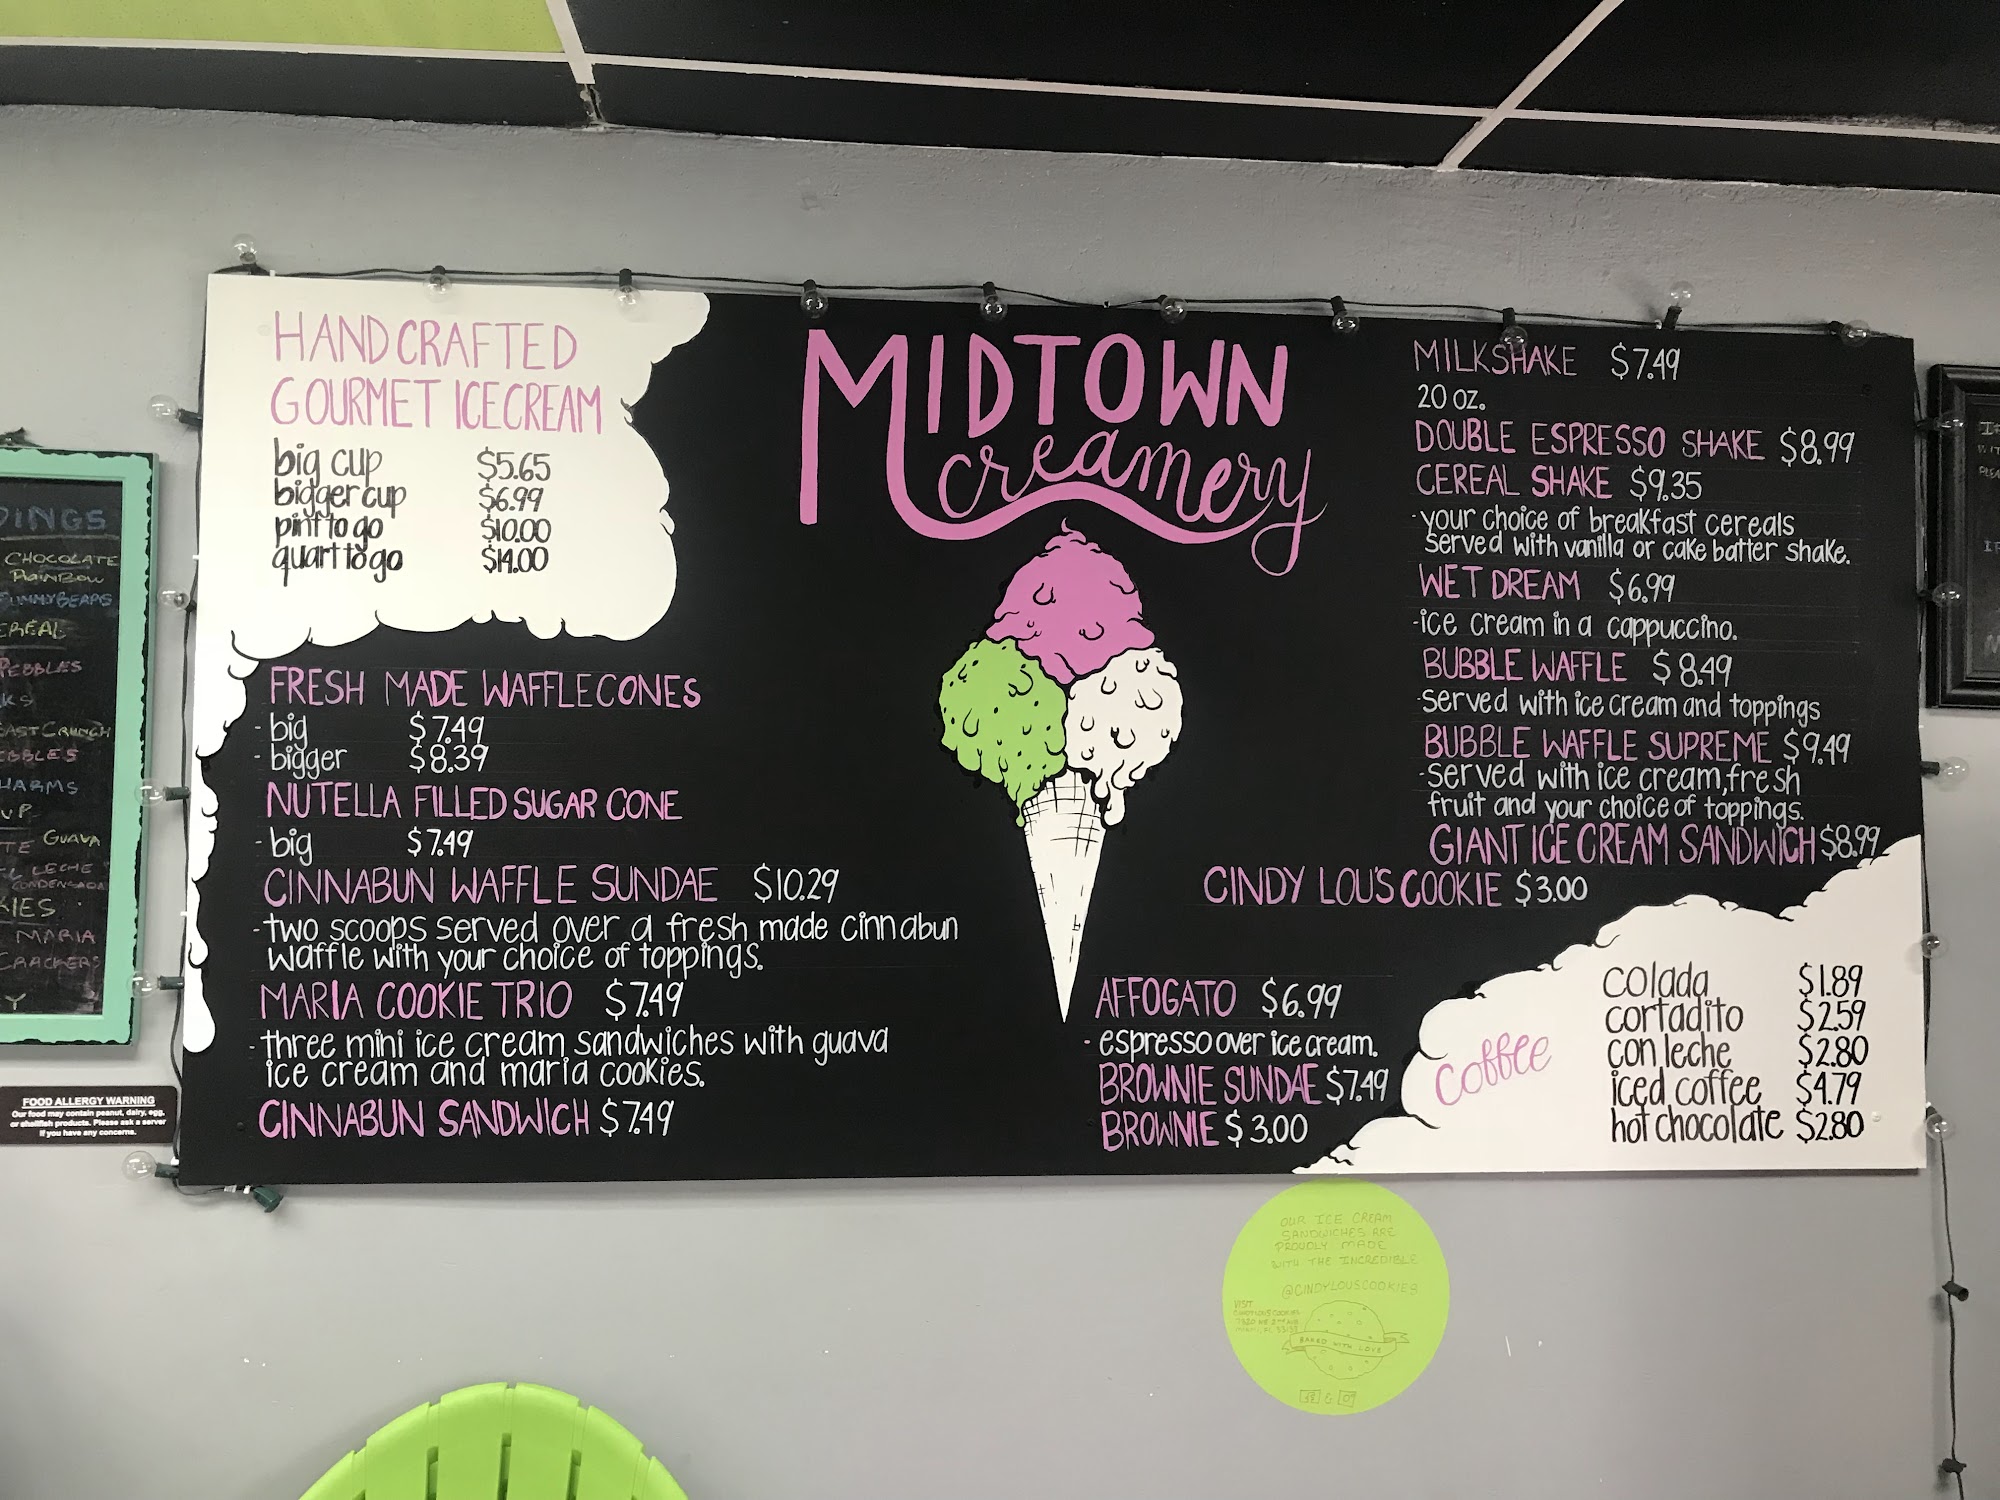 HANDCRAFTED
GOURMET ICECREAM
big cup $5.65
bigger cup $6.99
pint to go $10.00
quart to go $14.00
FRESH MADE WAFFLECONES
- big $7.49
- bigger $8.39
NUTELLA FILLED SUGAR CONE
- big $7.49
CINNABUN WAFFLE SUNDAE $10.29
- two scoops served over a fresh made cinnabun
waffle with your choice of toppings.
MARIA COOKIE TRIO $7.49
- three mini ice cream sandwiches with guava
ice cream and maria cookies.
CINNABUN SANDWICH $7.49
MIDTOWN
creamery
MILKSHAKE $7.49
20 oz.
DOUBLE ESPRESSO SHAKE $8.99
CEREAL SHAKE $9.35
- your choice of breakfast cereals
served with vanilla or cake batter shake.
WET DREAM $6.99
- ice cream in a cappuccino.
BUBBLE WAFFLE $8.49
- served with ice cream and toppings
BUBBLE WAFFLE SUPREME $9.49
- served with ice cream, fresh
fruit and your choice of toppings.
GIANT ICE CREAM SANDWICH $8.99
CINDY LOU'S COOKIE $3.00
AFFOGATO $6.99
- espresso over ice cream.
BROWNIE SUNDAE $7.49
BROWNIE $3.00
coffee
colada $1.89
cortadito $2.59
con leche $2.80
iced coffee $4.79
hot chocolate $2.80
DINGS
CHOCOLATE
RAINBOW
GUMMYBEARS
EREAL
PEBBLES
KS
AST CRUNCH
EBBLES
HARMS
UP
TE GUAVA
LECHE
CONDENSADA
KIES
MARIA
CRACKERS
Y
FOOD ALLERGY WARNING
Our food may contain peanut, dairy, egg,
or shellfish products. Please ask a server
if you have any concerns.
OUR ICE CREAM
SANDWICHES ARE
PROUDLY MADE
WITH THE INCREDIBLE
@CINDYLOUSCOOKIES
VISIT
CINDYLOUSCOOKIES
7320 NE 2ND AVE
MIAMI, FL 33138
BAKED WITH LOVE